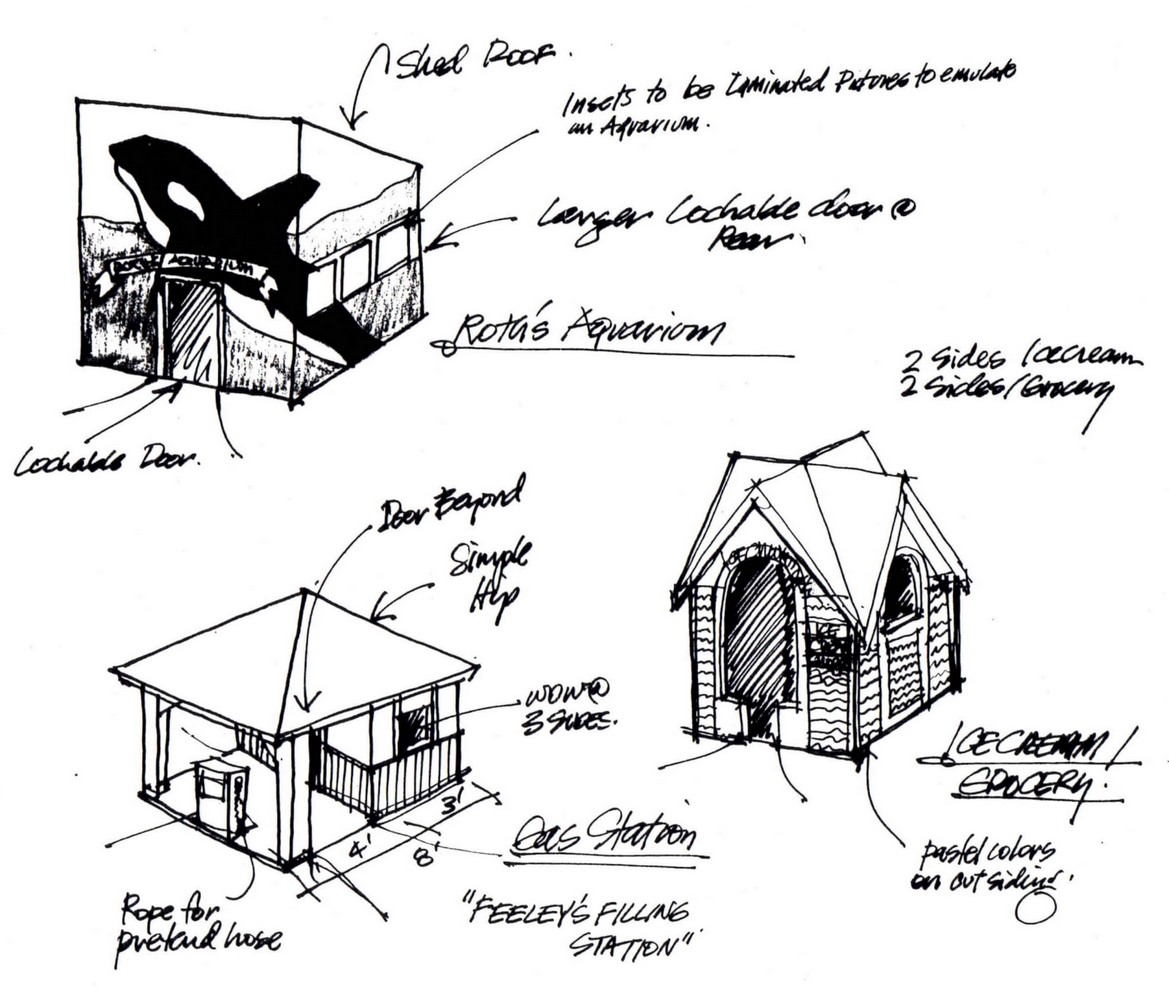 Shed Roof.
Insets to be Laminated Pictures to emulate
an Aquarium.
Larger Lockable door @
Rear.
AQUARIUM
Roth's Aquarium
2 Sides Icecream
2 Sides/Grocery
Lockable Door.
Door Beyond
Simple
Hip
WDW @
3 SIDES.
3'
4'
8'
Gas Station
"FEELEY'S FILLING
STATION"
Rope for
pretend hose
ICECREAM
ICE
ICECREAM/
GROCERY.
pastel colors
on out siding.